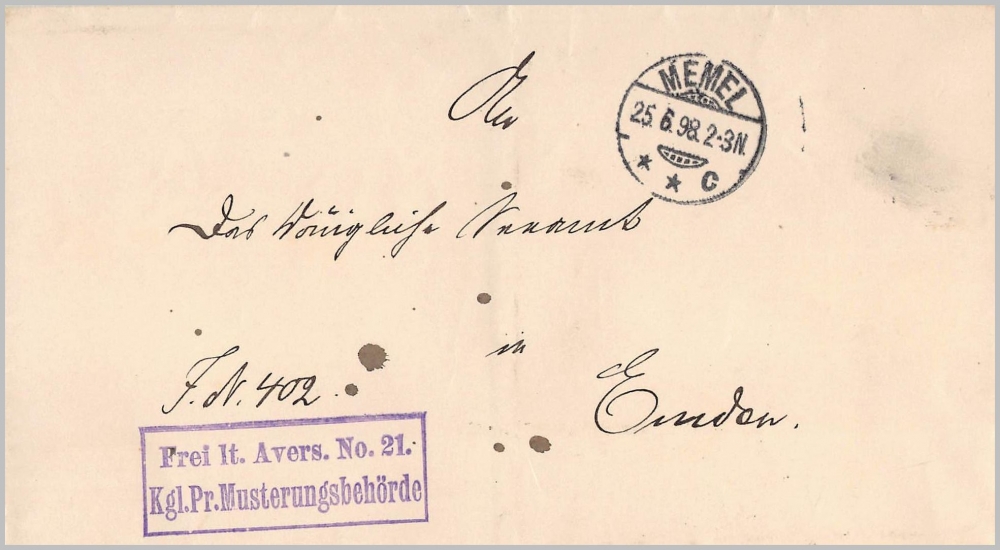 An
MEMEL
25. 6. 98. 2-3N.
* * C
das Königliche Seeamt
in
Emden.
J. N. 402.
Frei lt. Avers. No. 21.
Kgl. Pr. Musterungsbehörde